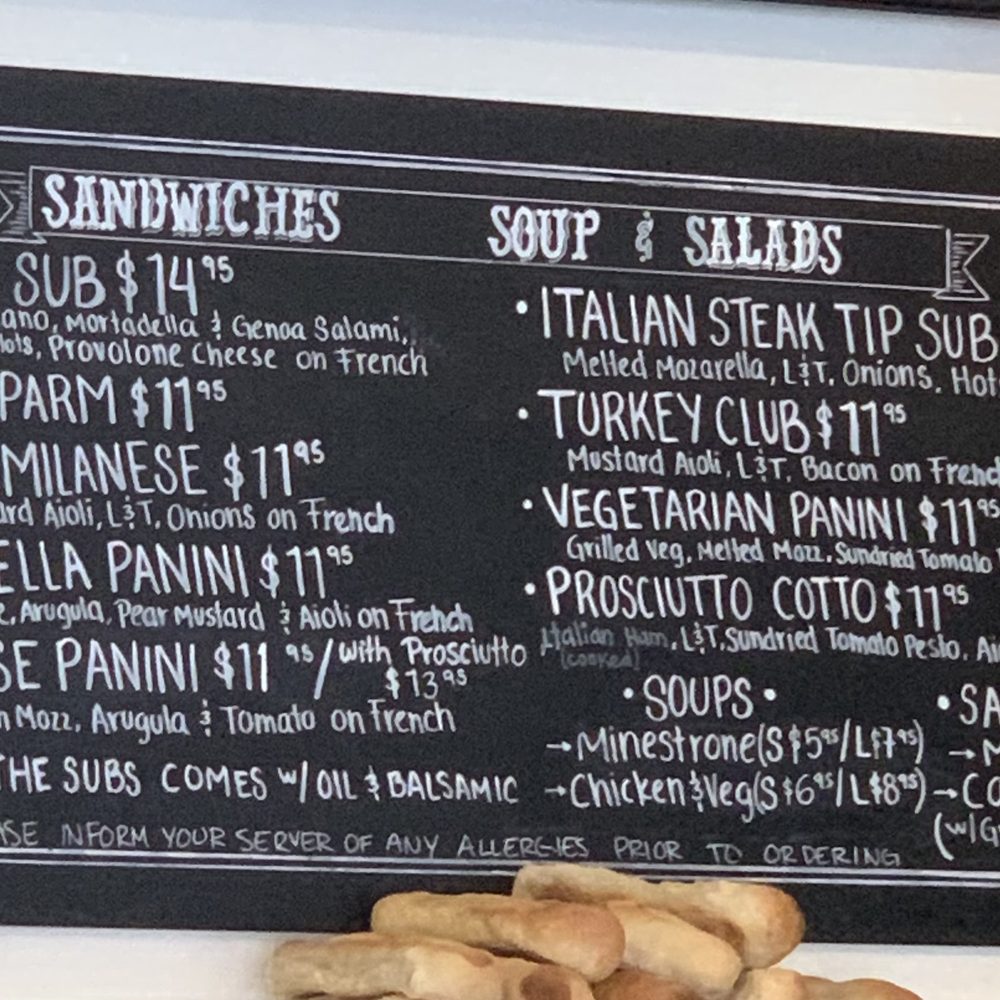 SANDWICHES
SUB $14.95
ano, Mortadella & Genoa Salami,
lots, Provolone Cheese on French
PARM $11.95
MILANESE $11.95
ard Aioli, L&T, Onions on French
ELLA PANINI $11.95
e, Arugula, Pear Mustard & Aioli on French
SE PANINI $11.95 / with Prosciutto
$13.95
n Mozz, Arugula & Tomato on French
THE SUBS COMES w/ OIL & BALSAMIC
ASE INFORM YOUR SERVER OF ANY ALLERGIES PRIOR TO ORDERING
SOUP & SALADS
• ITALIAN STEAK TIP SUB
Melted Mozarella, L&T, Onions, Hot
• TURKEY CLUB $11.95
Mustard Aioli, L&T, Bacon on French
• VEGETARIAN PANINI $11.95
Grilled Veg, Melted Mozz, Sundried Tomato
• PROSCIUTTO COTTO $11.95
Italian Ham, L&T, Sundried Tomato Pesto, Ai
(cooked)
• SOUPS •
→ Minestrone (S $5.95/L $7.95)
→ Chicken & Veg (S $6.95/L $8.95)
• SA
→ M
→ CA
(w/G